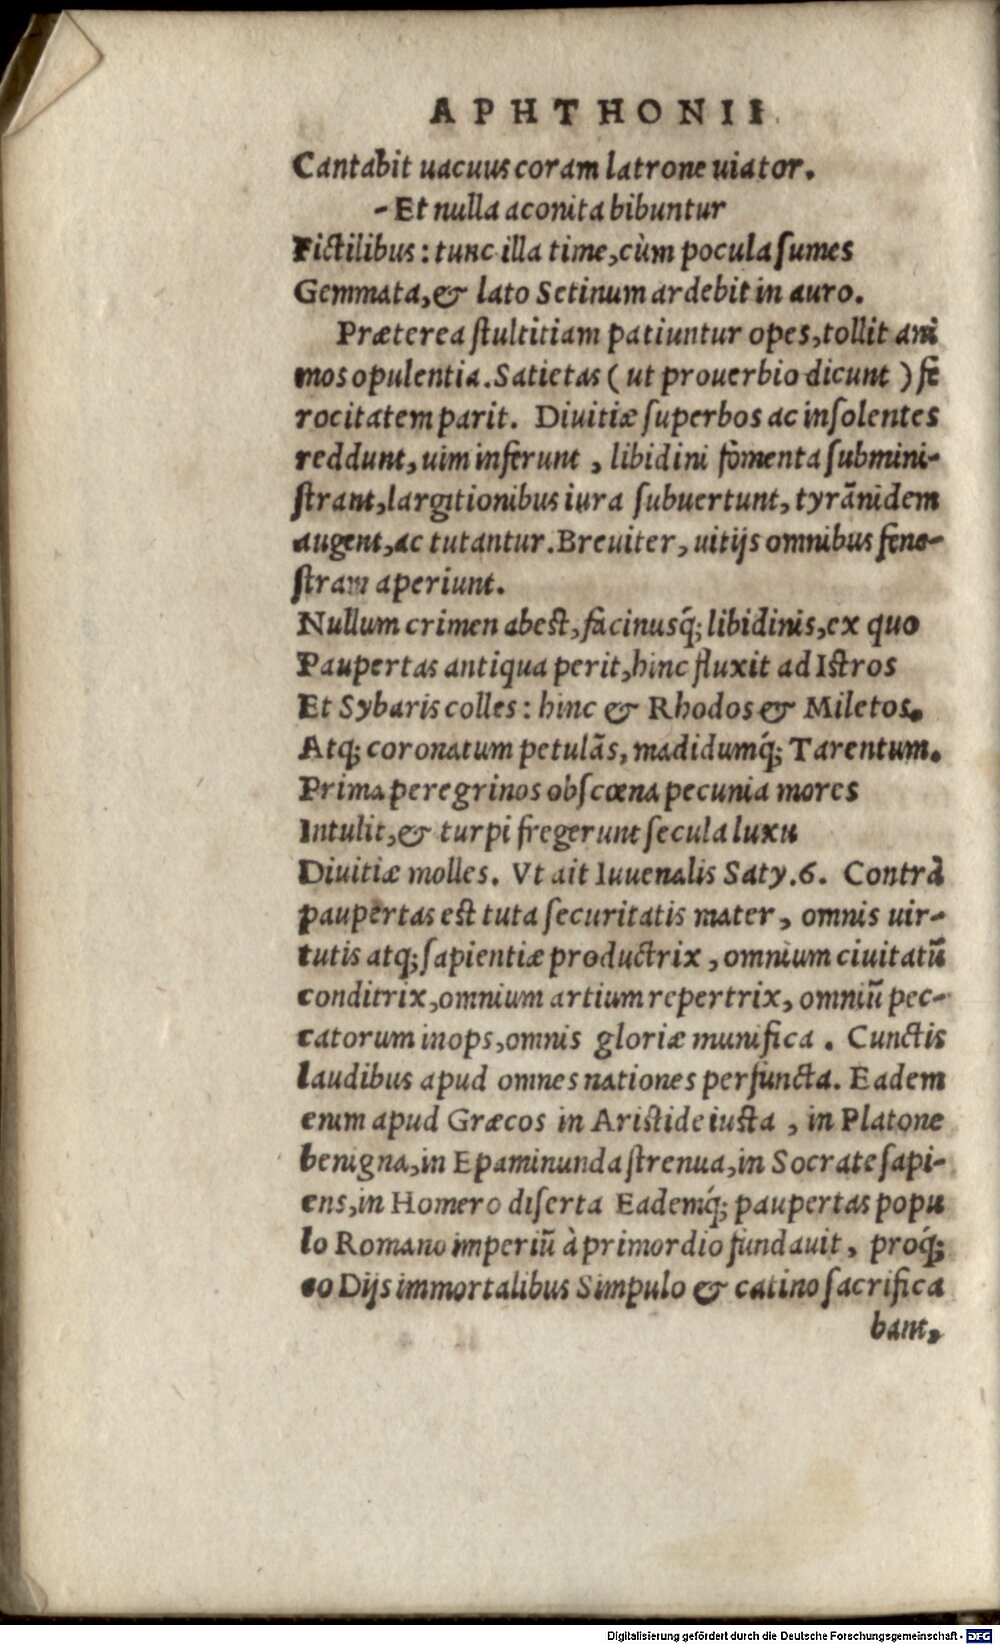 APHTHONII
Cantabit uacuus coram latrone uiator.
-Et nulla aconita bibuntur
Fictilibus: tunc illa time, cùm pocula ſumes
Gemmata, & lato Setinum ardebit in auro.
Præterea ſtultitiam patiuntur opes, tollit ani
mos opulentia. Satietas (ut prouerbio dicunt) fe
rocitatem parit. Diuitiæ ſuperbos ac inſolentes
reddunt, uim inferunt, libidini fomenta ſubmini-
ſtrant, largitionibus iura ſubuertunt, tyrãnidem
augent, ac tutantur. Breuiter, uitijs omnibus fene-
ſtram aperiunt.
Nullum crimen abeſt, facinusq́; libidinis, ex quo
Paupertas antiqua perit, hinc fluxit ad Iſtros
Et Sybaris colles: hinc & Rhodos & Miletos.
Atq; coronatum petulãs, madidumq́; Tarentum.
Prima peregrinos obſcœna pecunia mores
Intulit, & turpi fregerunt ſecula luxu
Diuitiæ molles. Vt ait Iuuenalis Saty. 6. Contrà
paupertas eſt tuta ſecuritatis mater, omnis uir-
tutis atq; ſapientiæ productrix, omnium ciuitatũ
conditrix, omnium artium repertrix, omniũ pec-
catorum inops, omnis gloriæ munifica. Cunctis
laudibus apud omnes nationes perfuncta. Eadem
enim apud Græcos in Ariſtide iuſta, in Platone
benigna, in Epaminunda ſtrenua, in Socrate ſapi-
ens, in Homero diſerta Eademq́; paupertas popu
lo Romano imperiũ à primordio fundauit, proq́;
eo Dijs immortalibus Simpulo & catino ſacrifica
bant,
Digitalisierung gefördert durch die Deutsche Forschungsgemeinschaft - DFG